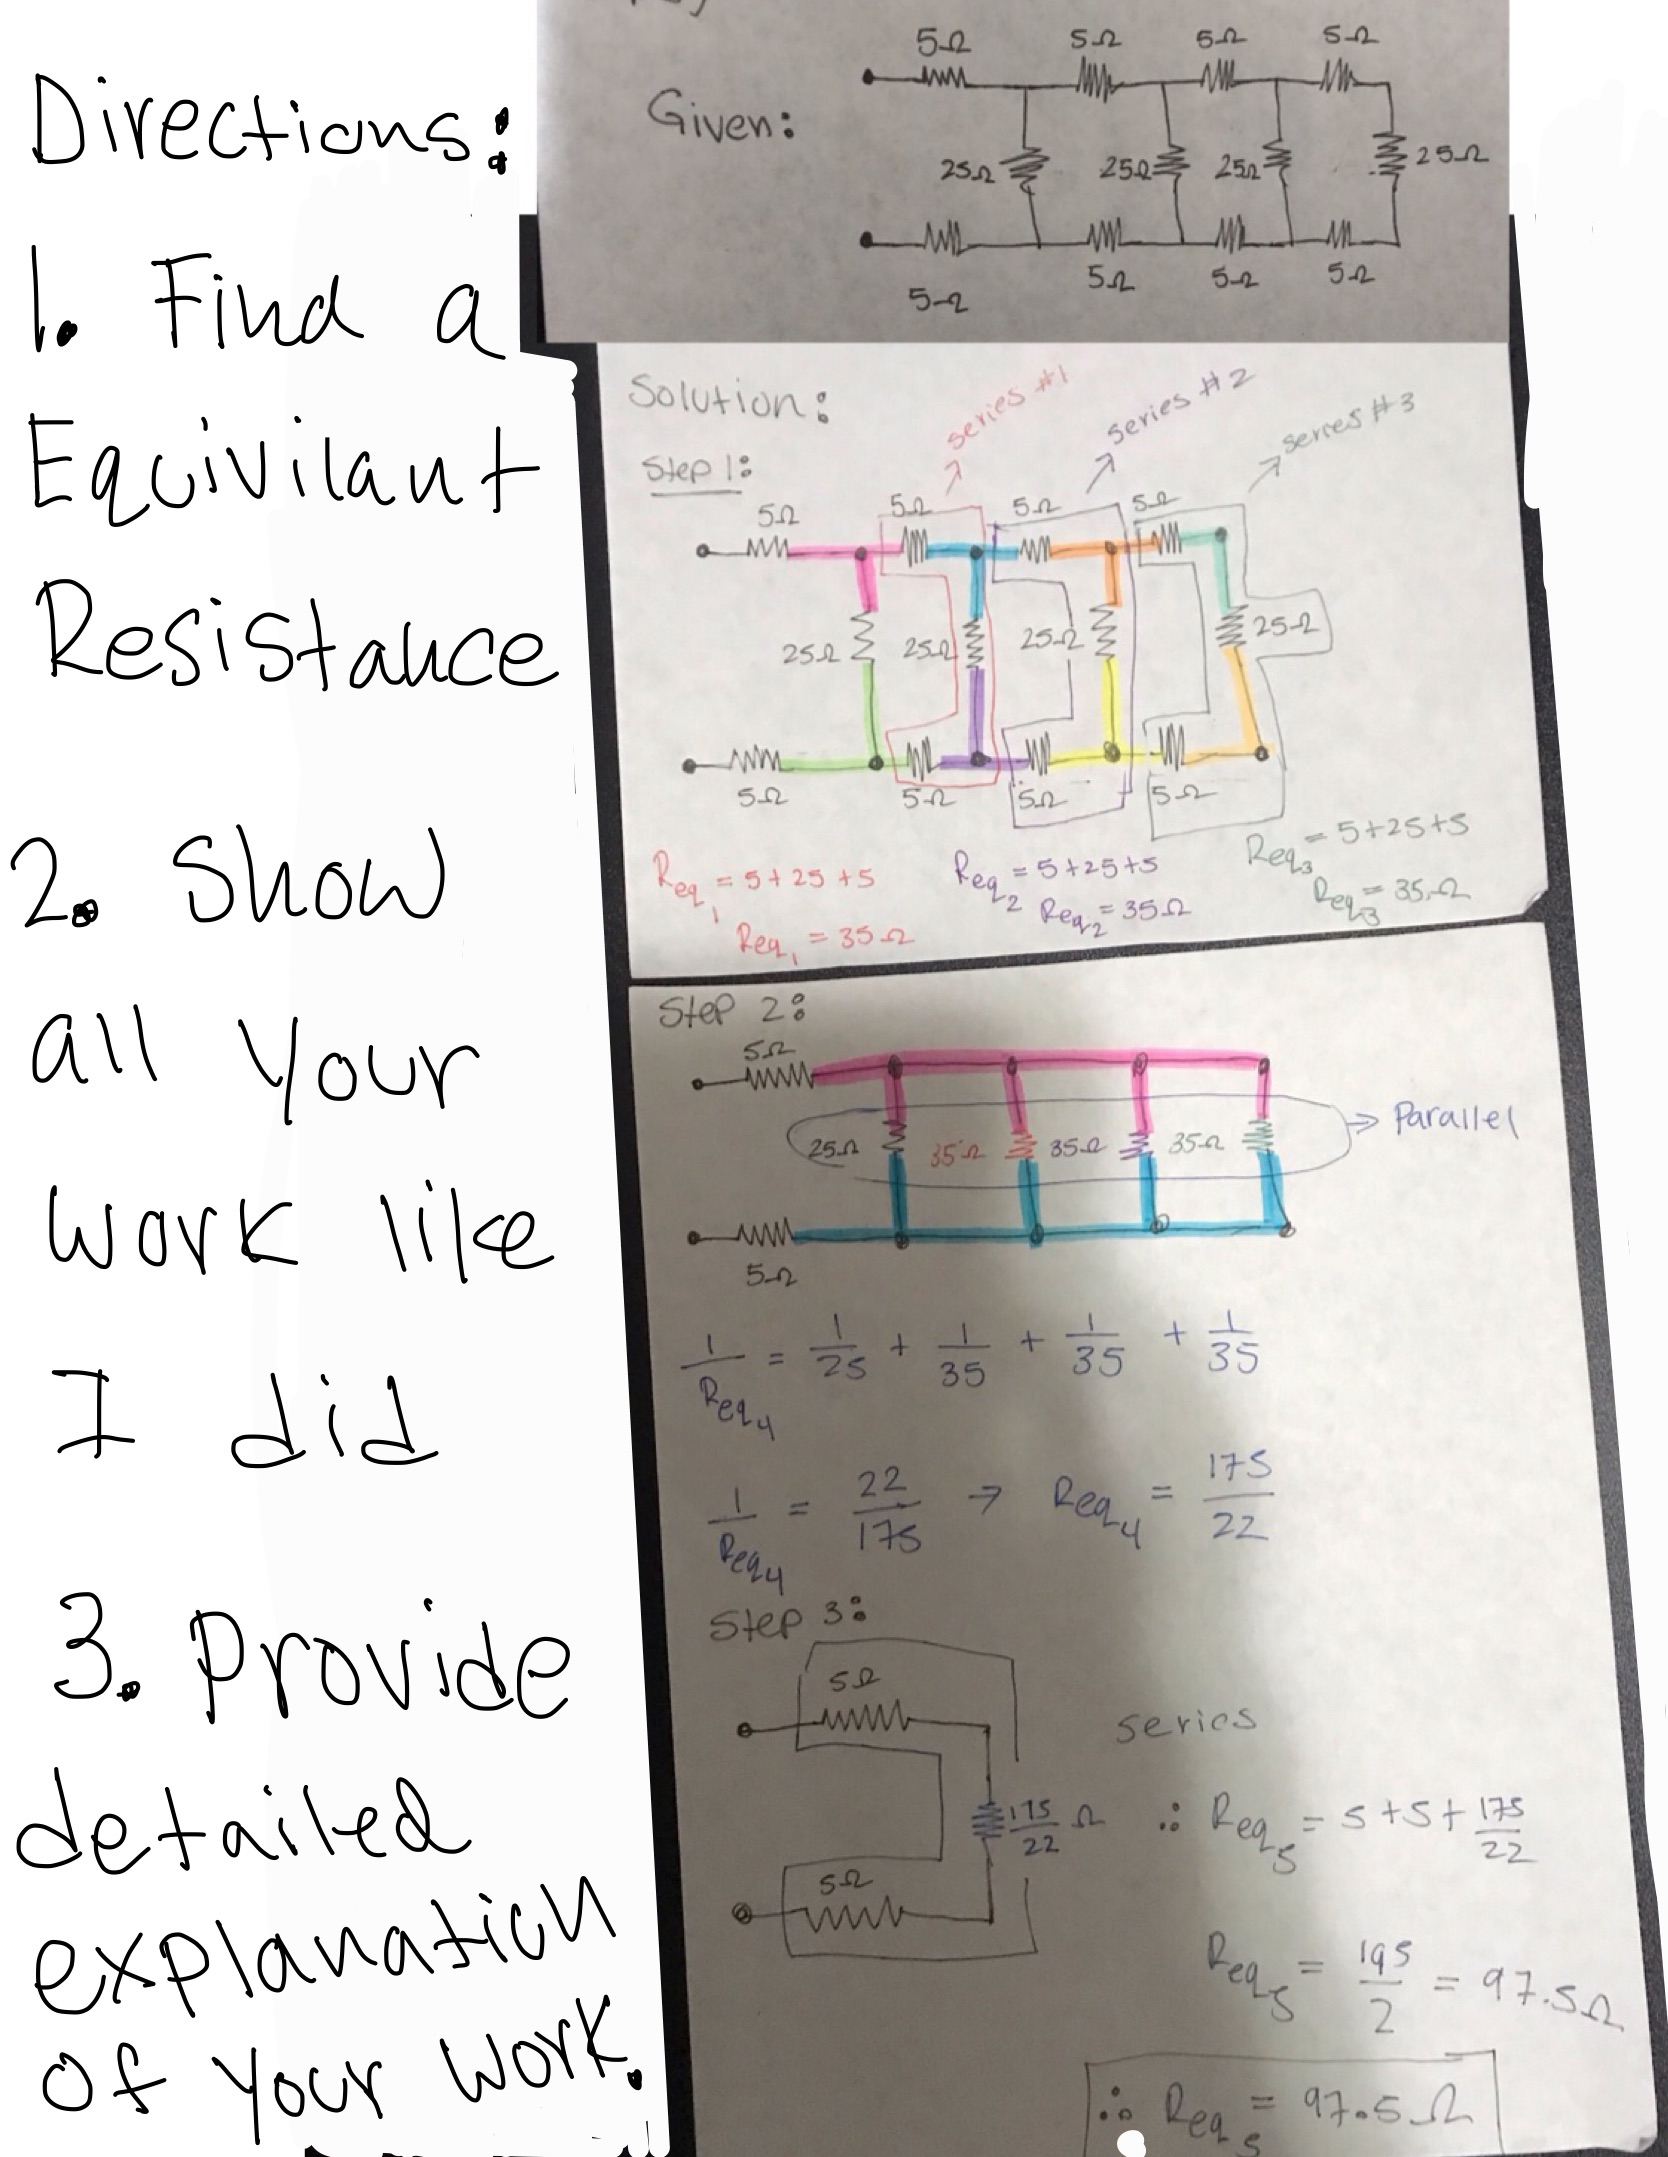 Directions:
1. Find a
Equivilant
Resistance
2. Show
all your
work like
I did
3. Provide
detailed
explanation
of your work.
5Ω 5Ω 5Ω 5Ω
Given:
25Ω 25Ω 25Ω 25Ω
5Ω 5Ω 5Ω 5Ω
Solution:
series #1 series #2 series #3
Step 1:
5Ω 5Ω 5Ω 5Ω
25Ω 25Ω 25Ω 25Ω
5Ω 5Ω 5Ω 5Ω
Req1 = 5+25+5
Req1 = 35Ω
Req2 = 5+25+5
Req2 = 35Ω
Req3 = 5+25+5
Req3 = 35Ω
Step 2:
5Ω
25Ω 35Ω 35Ω 35Ω → Parallel
5Ω
1/Req4 = 1/25 + 1/35 + 1/35 + 1/35
1/Req4 = 22/175 → Req4 = 175/22
Step 3:
5Ω
series
175/22 Ω
∴ Req5 = 5+5+175/22
5Ω
Req5 = 195/2 = 97.5Ω
∴ Req5 = 97.5Ω